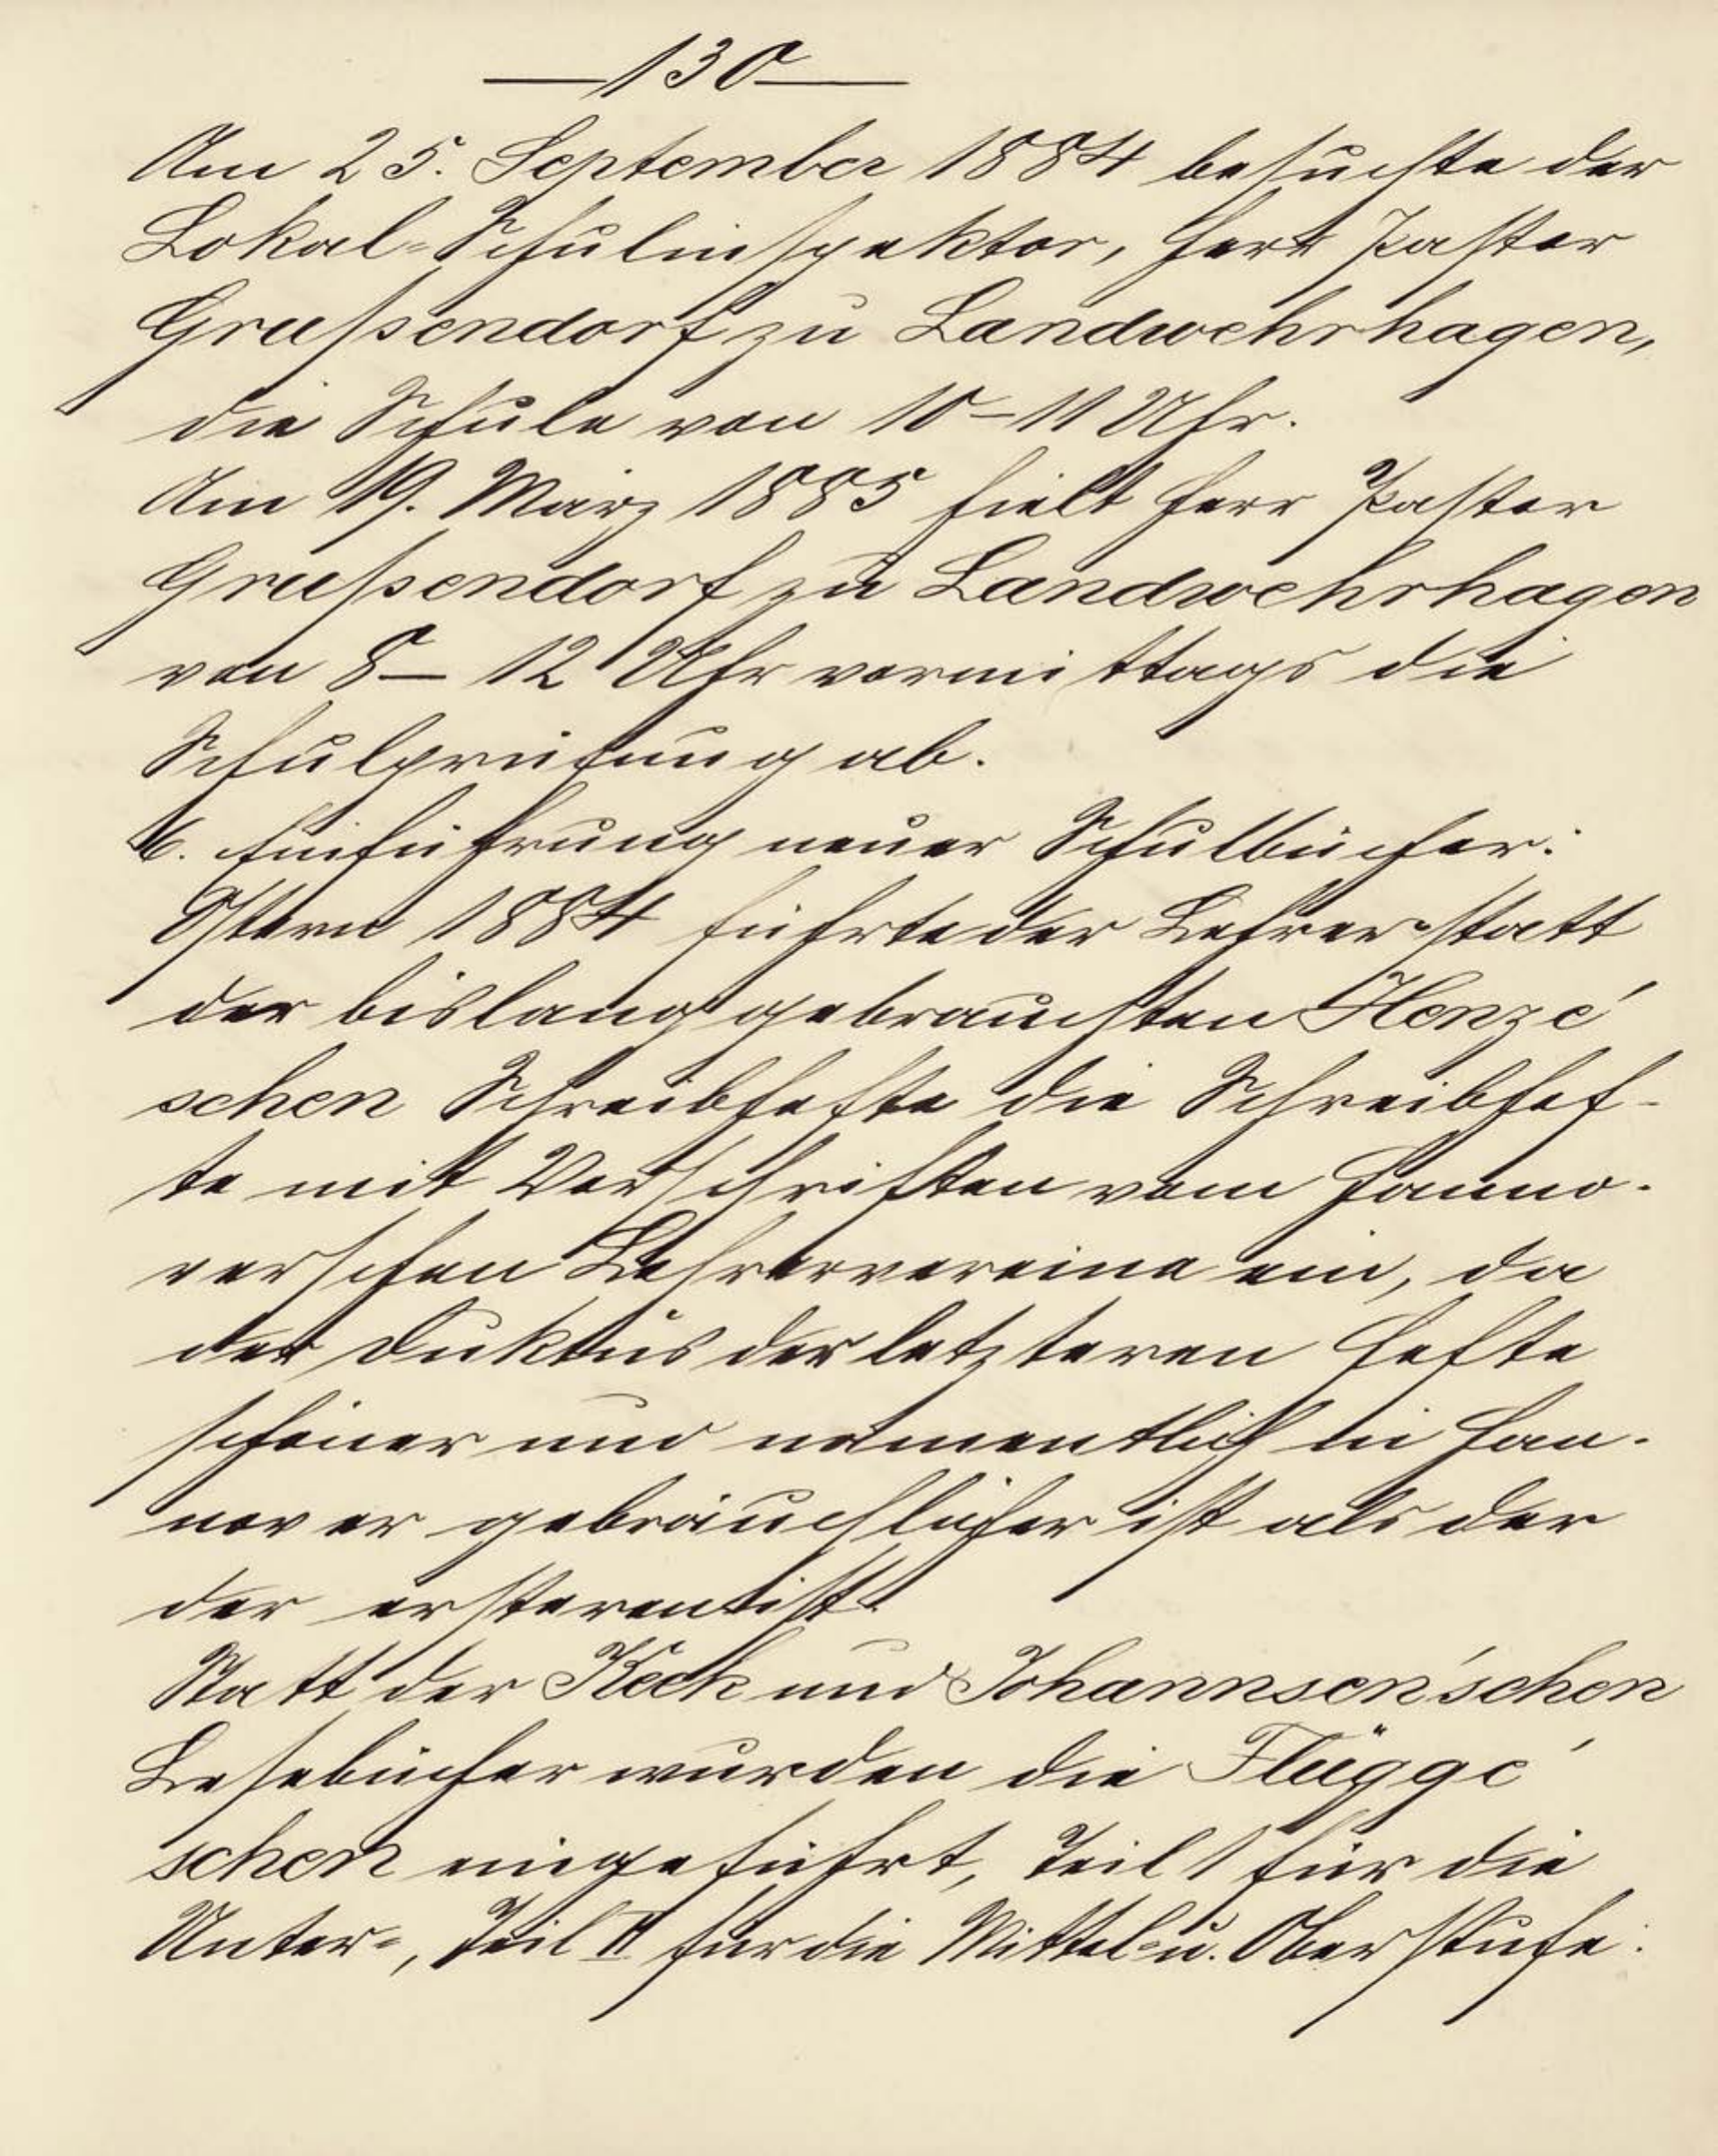 —130—
Am 25. September 1884 besuchte der
Lokal-Schulinspektor, Herr Pastor
Grußendorf zu Landwehrhagen,
die Schule von 10–11 Uhr.
Am 19. März 1885 hielt Herr Pastor
Grußendorf zu Landwehrhagen
von 8– 12 Uhr vormittags die
Schulprüfung ab.
6. Einführung neuer Schulbücher:
Ostern 1884 führte der Lehrer statt
der bislang gebrauchten Henze'
schen Schreibhefte die Schreibhef-
te mit Vorschriften vom Hanno-
verschen Lehrervereine ein, da
der Duktus der letzteren Hefte
schöner und namentlich in Han-
nover gebräuchlicher ist als der
der ersteren ist.
Statt der Keck und Johannsen'schen
Lesebücher wurden die Flügge'
schen eingeführt, Teil I für die
Unter-, Teil II für die Mittel- u. Oberstufe.